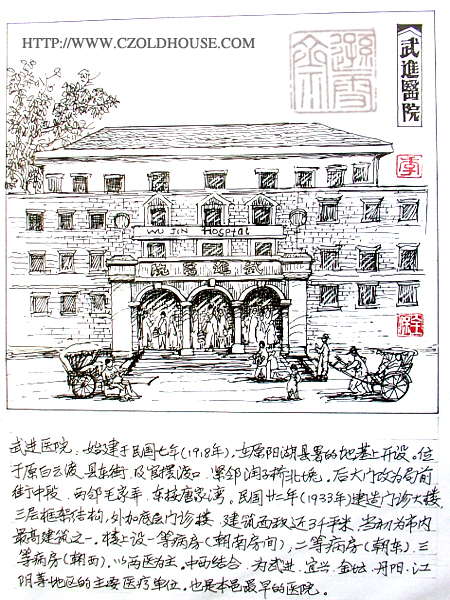 HTTP://WWW.CZOLDHOUSE.COM
武進醫院
WU JIN Hospital
武進醫院
武进医院：始建于民国七年(1918年)，在原阳湖县署的地基上开设。位
于原白云渡、县东街，及官摆渡口，紧邻润子桥北境。后大门改为局前
街中段，西邻毛家弄，东接唐家湾。民国廿二年(1933年)建造门诊大楼，
三层框架结构，外加底层门诊楼，建筑面积近34平米，当初为市内
最高建筑之一。楼上设一等病房(朝南房间)，二等病房(朝东)，三
等病房(朝西)。以西医为主，中西结合，为武进、宜兴、金坛、丹阳、江
阴等地区的主要医疗单位。也是本邑最早的医院。